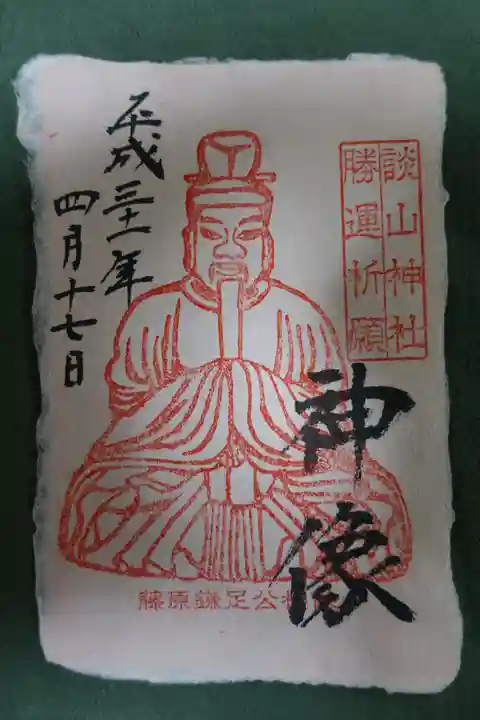 談山神社
勝運祈願
神像
平成三十一年
四月十七日
藤原鎌足公